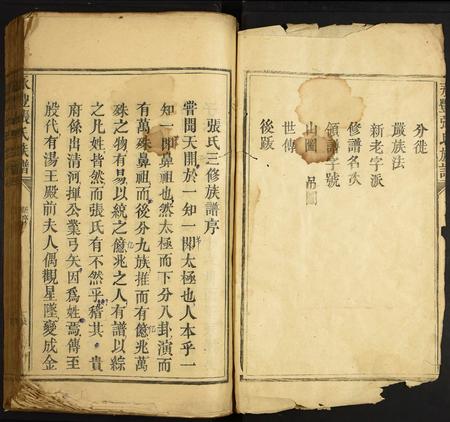 永豐張氏族譜
分徙
嚴族法
新老字派
修譜名次
領譜字號
山圖
世傳
後跋
張氏三修族譜序
嘗聞天開於一知一開太極也人本乎一
知一開鼻祖也然太極而下分八卦演而
有萬殊鼻祖而後分九族推而有億兆萬
殊之物有易以統之億兆之人有譜以綜
之凡姓皆然而張氏有不然乎稽其貴
府係出清河揮公業弓矢因為姓焉傳至
殷代有湯王殿前夫人偶觀星墜變成金
永豐張氏族譜